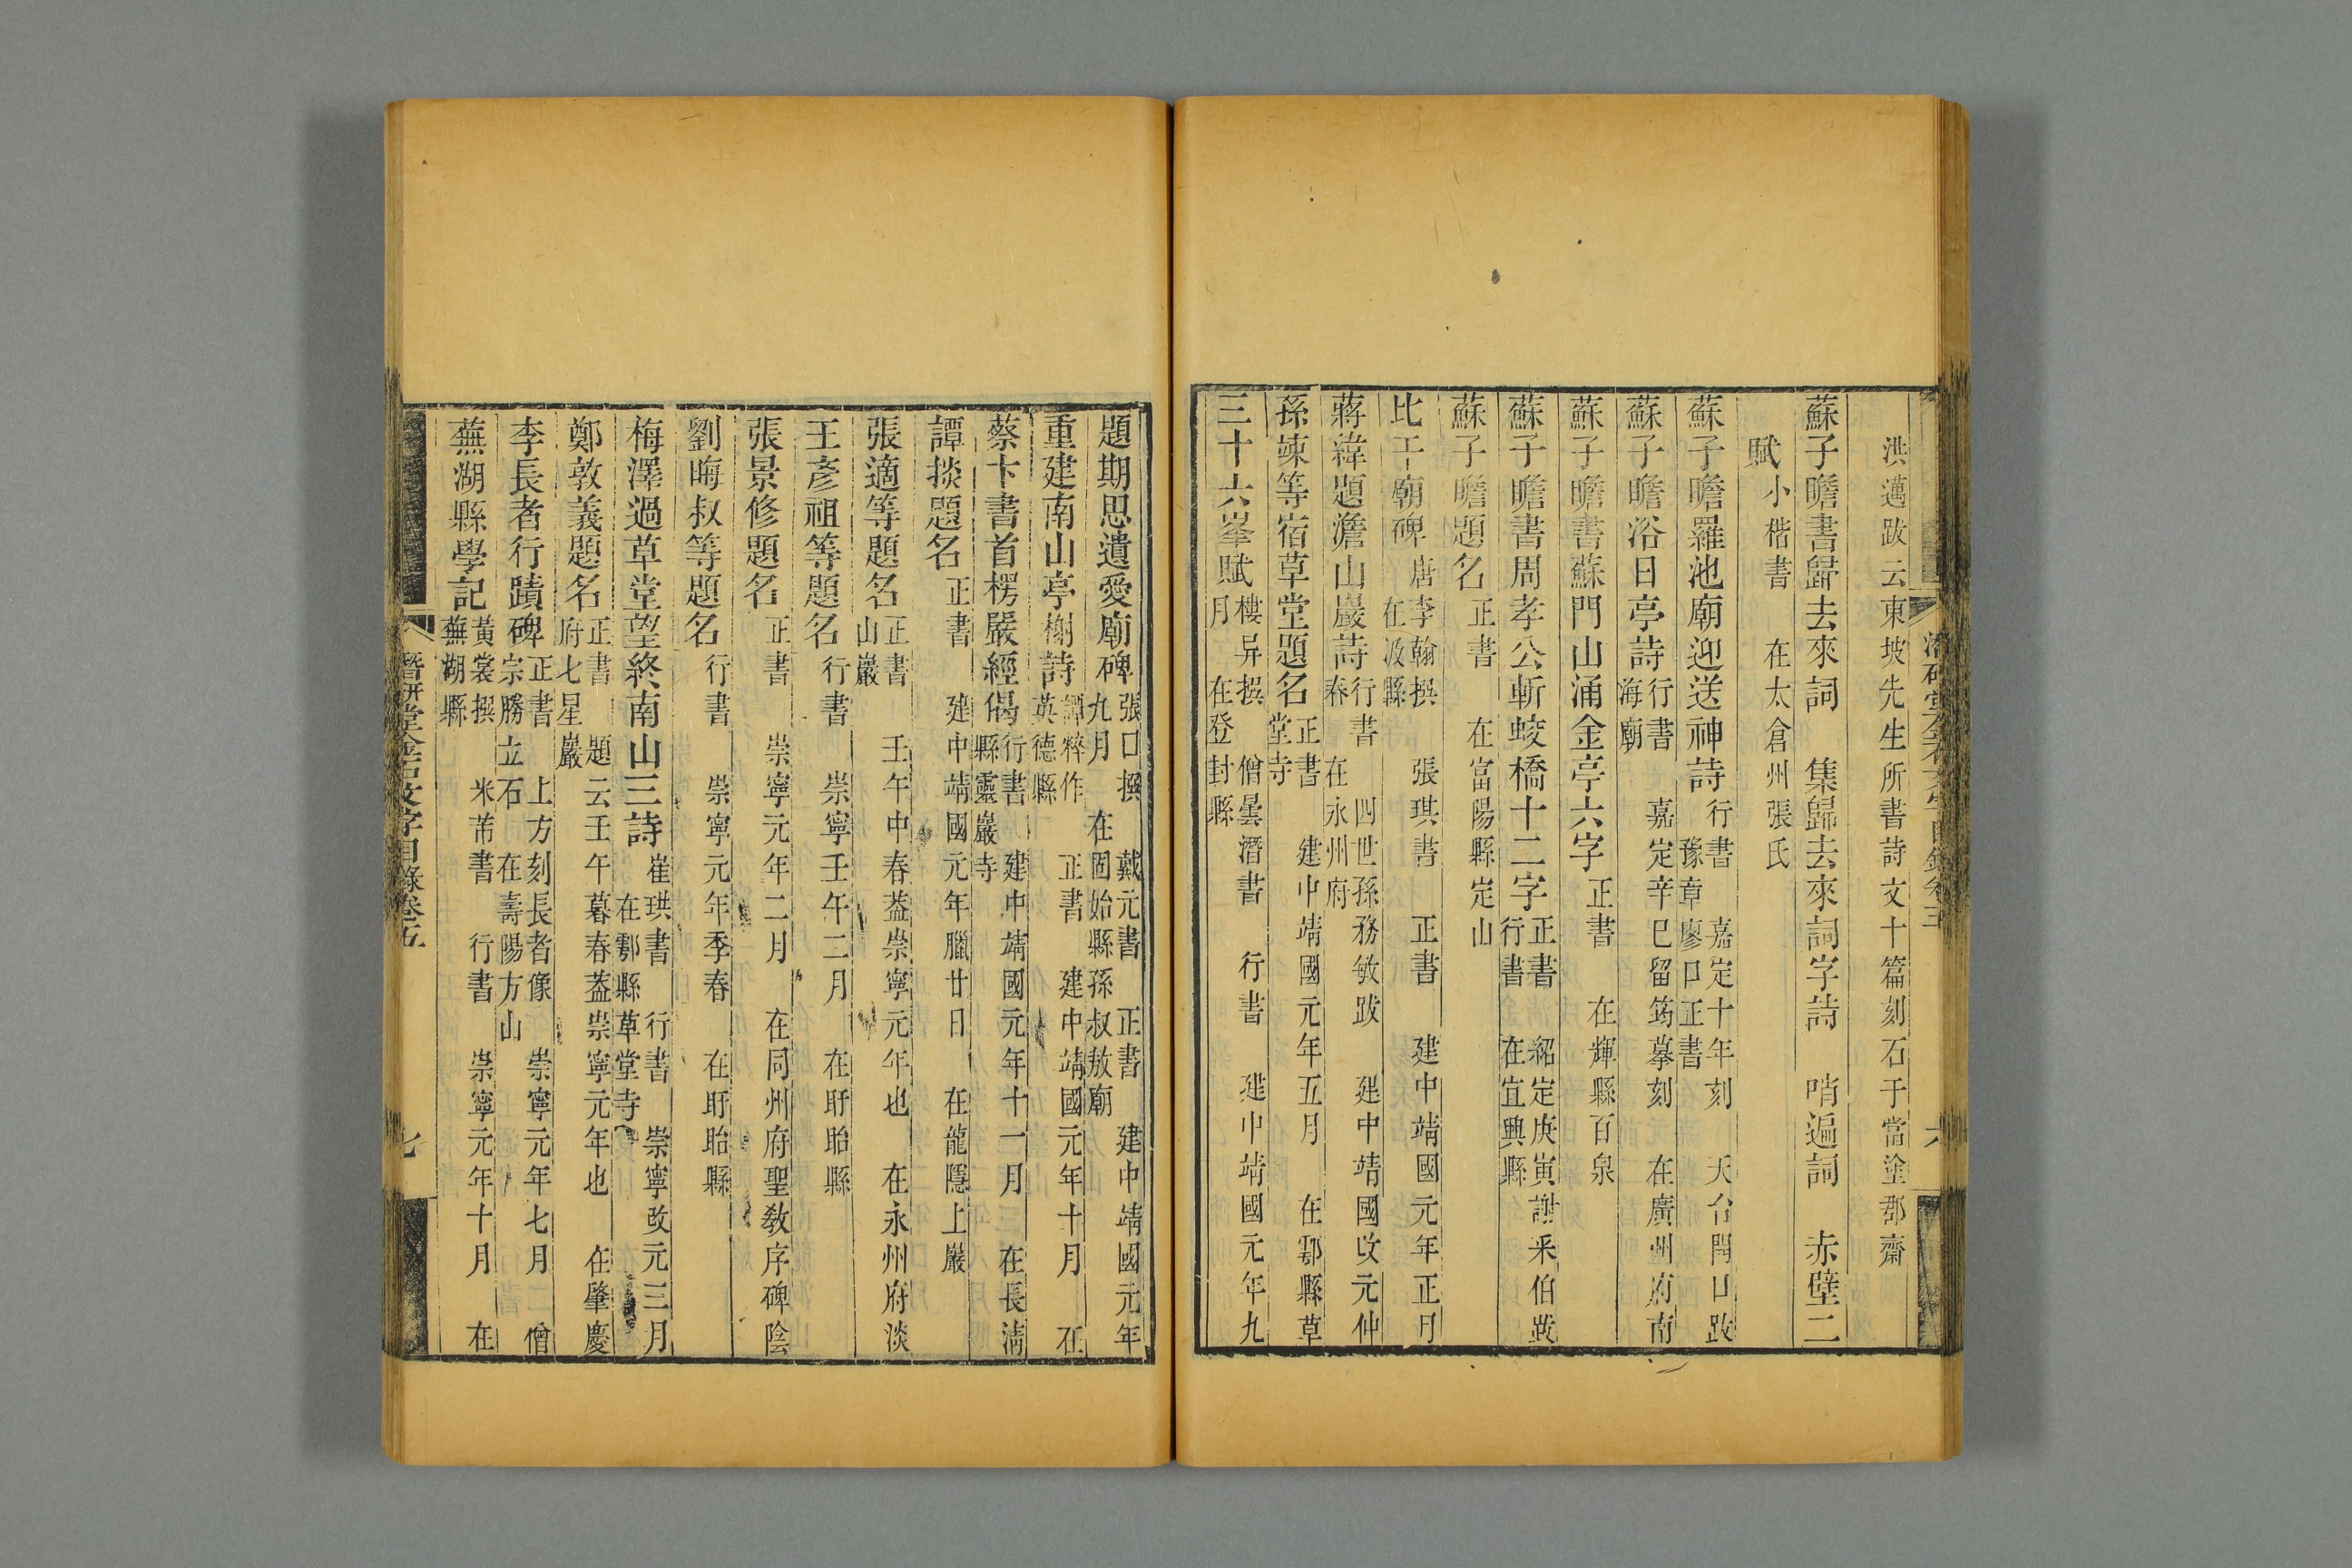 洪邁跋云東坡先生所書詩文十篇刻石于當塗郡齋
蘇子瞻書歸去來詞　集歸去來詞字詩　哨遍詞　赤壁二
賦　小楷書　在太倉州張氏
蘇子瞻羅池廟迎送神詩　行書　嘉定十年刻　天台開口跋
豫章廖口正書
蘇子瞻浴日亭詩　行書　嘉定辛巳留筠摹刻　在廣州府南
海廟
蘇子瞻書蘇門山涌金亭六字　正書　在輝縣百泉
蘇子瞻書周孝公斬蛟橋十二字　正書　紹定庚寅謝采伯跋
行書　在宜興縣
蘇子瞻題名　正書　在富陽縣定山
比干廟碑　唐李翰撰　張琪書　正書　建中靖國元年正月
在汲縣
蔣緯題澹山巖詩　行書　四世孫務敏跋　建中靖國改元仲
春　在永州府
孫竦等宿草堂題名　正書　建中靖國元年五月　在鄠縣草
堂寺
三十六峯賦　樓异撰　僧曇潛書　行書　建中靖國元年九
月　在登封縣
題期思遺愛廟碑　張口撰　戴元書　正書　建中靖國元年
九月　在固始縣孫叔敖廟
重建南山亭榭詩　譚粹作　正書　建中靖國元年十月　在
英德縣
蔡卞書首楞嚴經偈　行書　建中靖國元年十一月　在長淸
縣靈巖寺
譚掞題名　正書　建中靖國元年臘廿日　在龍隱上巖
張適等題名　正書　壬午中春葢崇寧元年也　在永州府淡
山巖
王彥祖等題名　行書　崇寧壬午二月　在盱眙縣
張景修題名　正書　崇寧元年二月　在同州府聖敎序碑陰
劉晦叔等題名　行書　崇寧元年季春　在盱眙縣
梅澤過草堂望終南山三詩　崔珙書　行書　崇寧改元三月
在鄠縣草堂寺
鄭敦義題名　正書　題云壬午暮春葢崇寧元年也　在肇慶
府七星巖
李長者行蹟碑　正書　上方刻長者像　崇寧元年七月　僧
宗勝立石　在壽陽方山
蕪湖縣學記　黃裳撰　米芾書　行書　崇寧元年十月　在
蕪湖縣
潛研堂金石文字目錄卷五
七